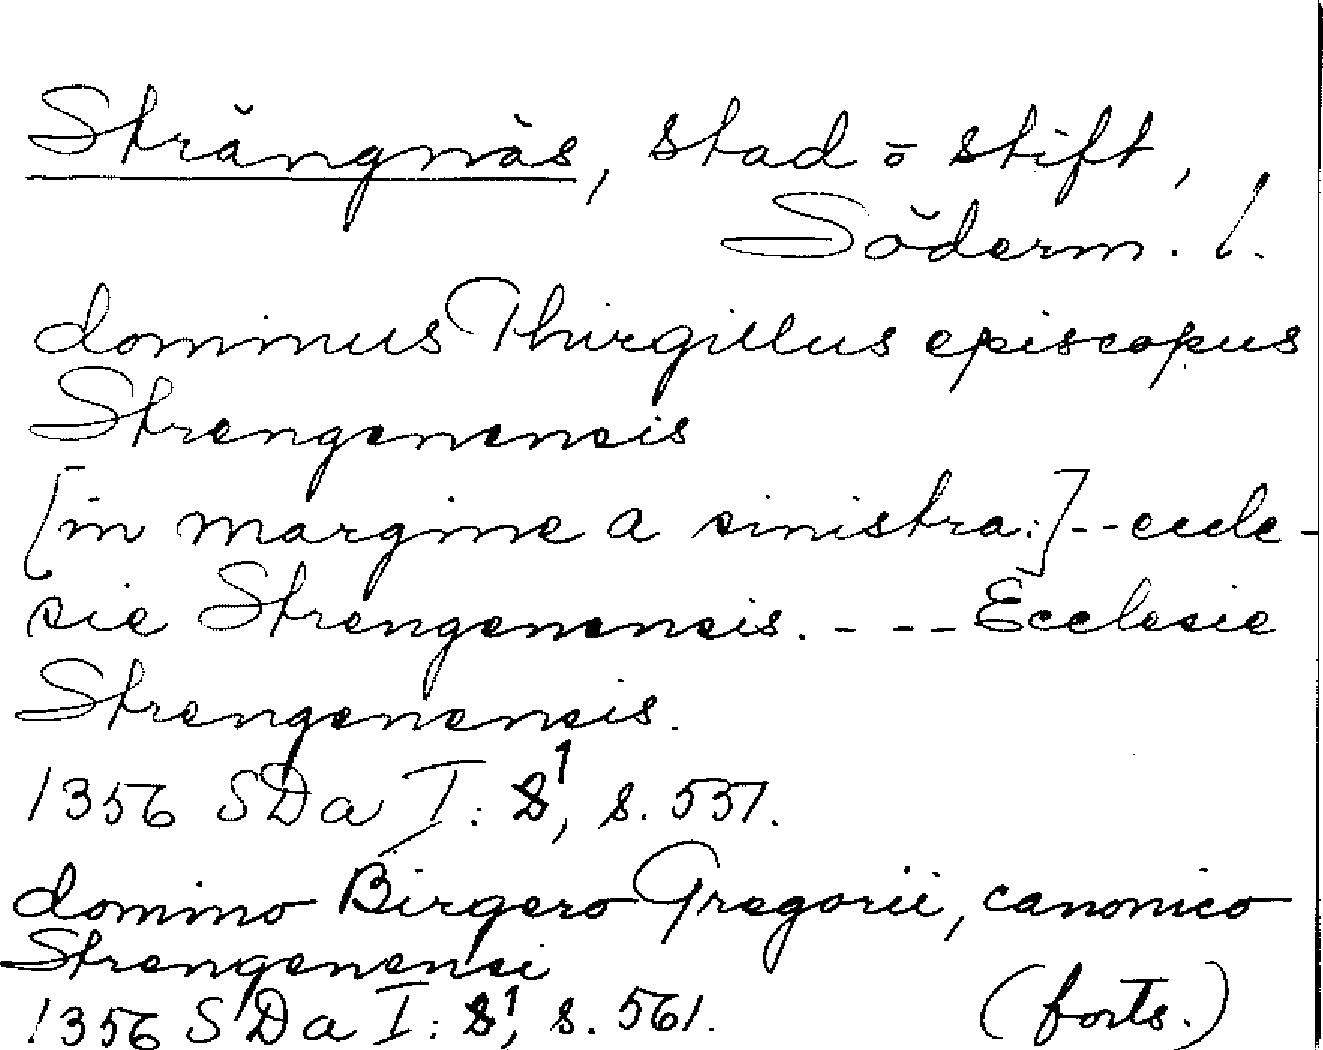 Strängnäs, stad o stift,
Söderm. l.
dominus Thirgillus episcopus
Strengenensis
[in margine a sinistra:]--eccle-
sie Strengenensis.---Ecclesie
Strengenensis.
1356 SDa I: 1, s. 537.
domino Birgero Gregorii, canonico
Strengenensi
1356 SDa I: 1, s. 561. (forts.)